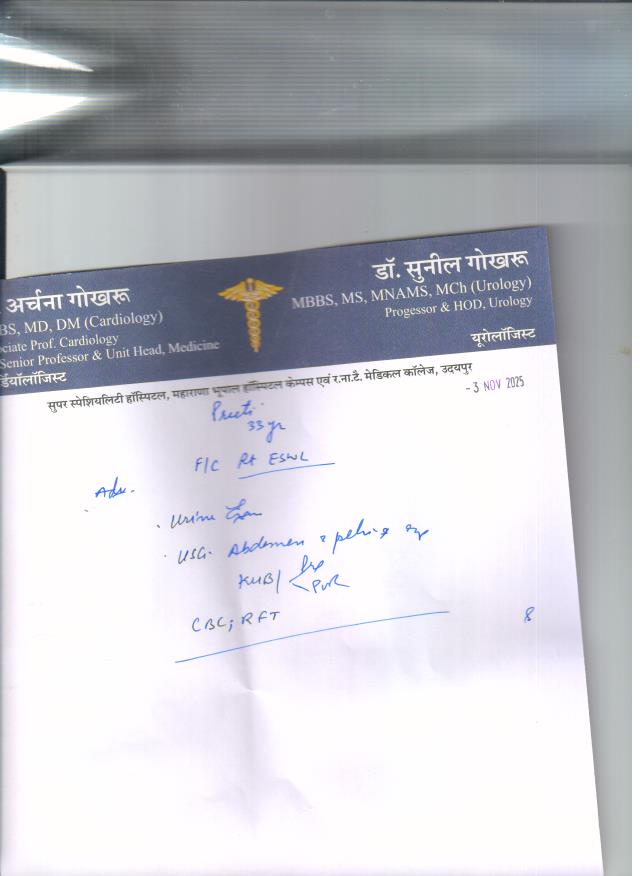 अर्चना गोखरू
BS, MD, DM (Cardiology)
ociate Prof. Cardiology
Senior Professor & Unit Head, Medicine
र्डियॉलॉजिस्ट
डॉ. सुनील गोखरू
MBBS, MS, MNAMS, MCh (Urology)
Progessor & HOD, Urology
यूरोलॉजिस्ट
सुपर स्पेशियलिटी हॉस्पिटल, महाराणा भूपाल हॉस्पिटल केम्पस एवं र.ना.टै. मेडिकल कॉलेज, उदयपुर
- 3 NOV 2025
Preeti
33 yr
F/C Rt ESWL
Adv.
Urine
USG. Abdomen & pelvis
KUB/
PVR
CBC; RFT